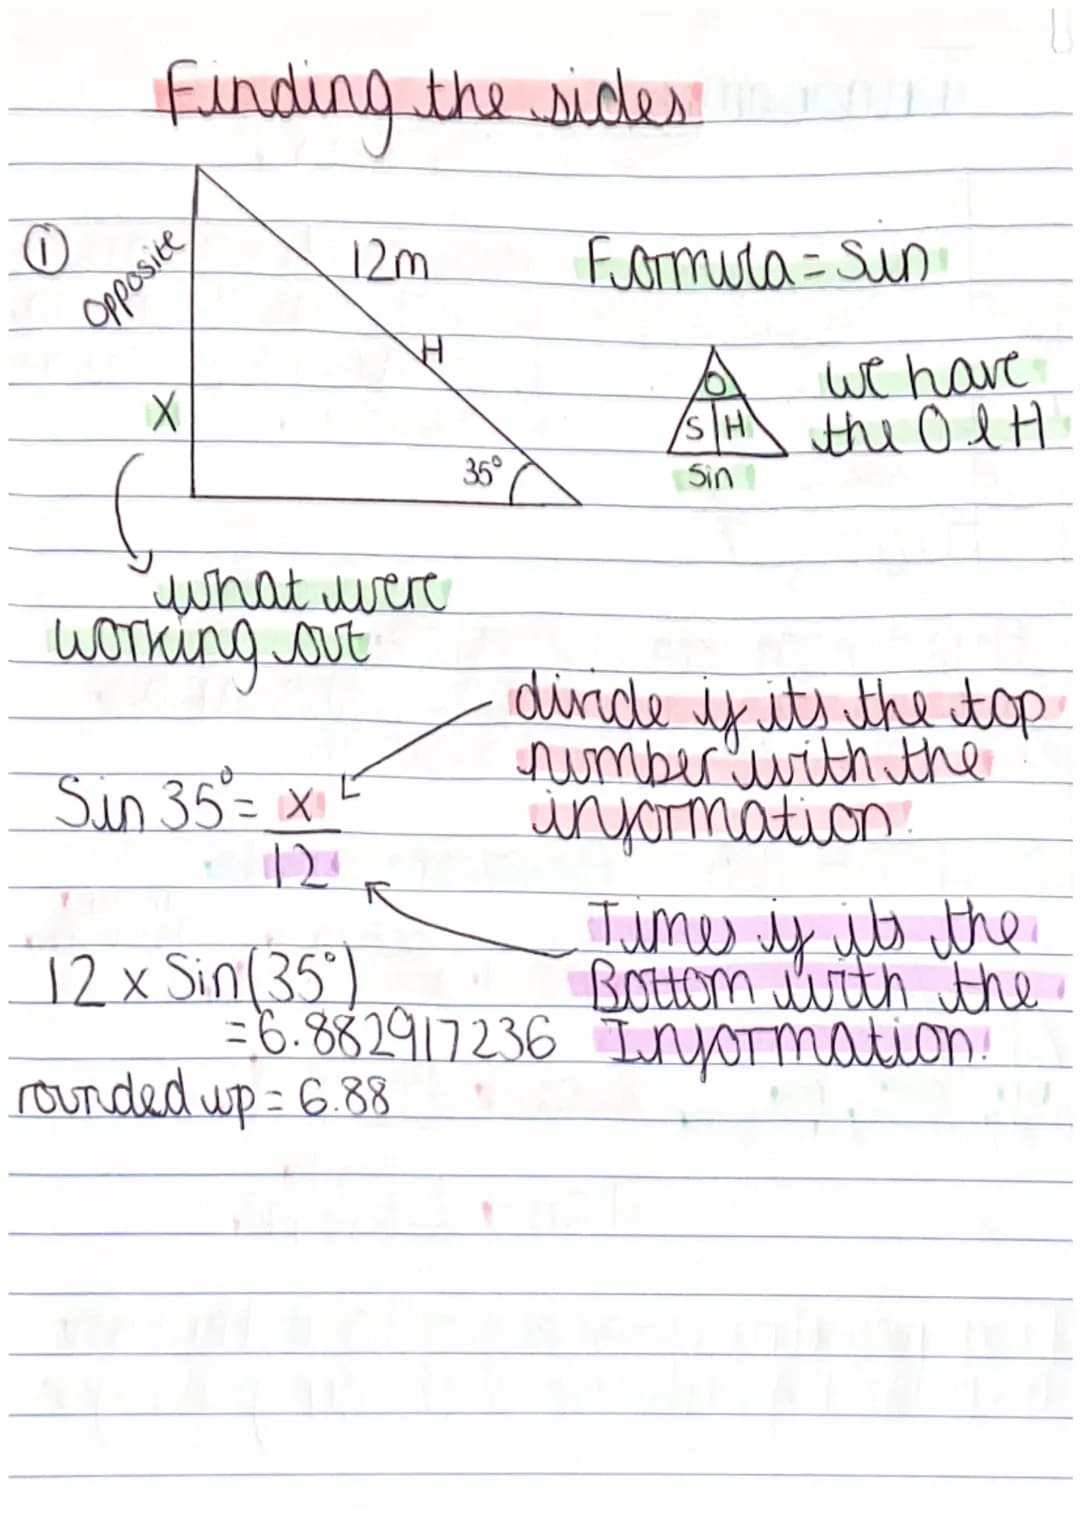 Finding the sides
①
opposite
12m
Formula = Sin
H
X
35°
O
S H
Sin
we have
the O & H
what were
working out
divide if its the top
number with the
information.
Sin 35° = x
12
Times if its the
Bottom with the
Information.
12 x Sin(35°)
= 6.882917236
rounded up = 6.88